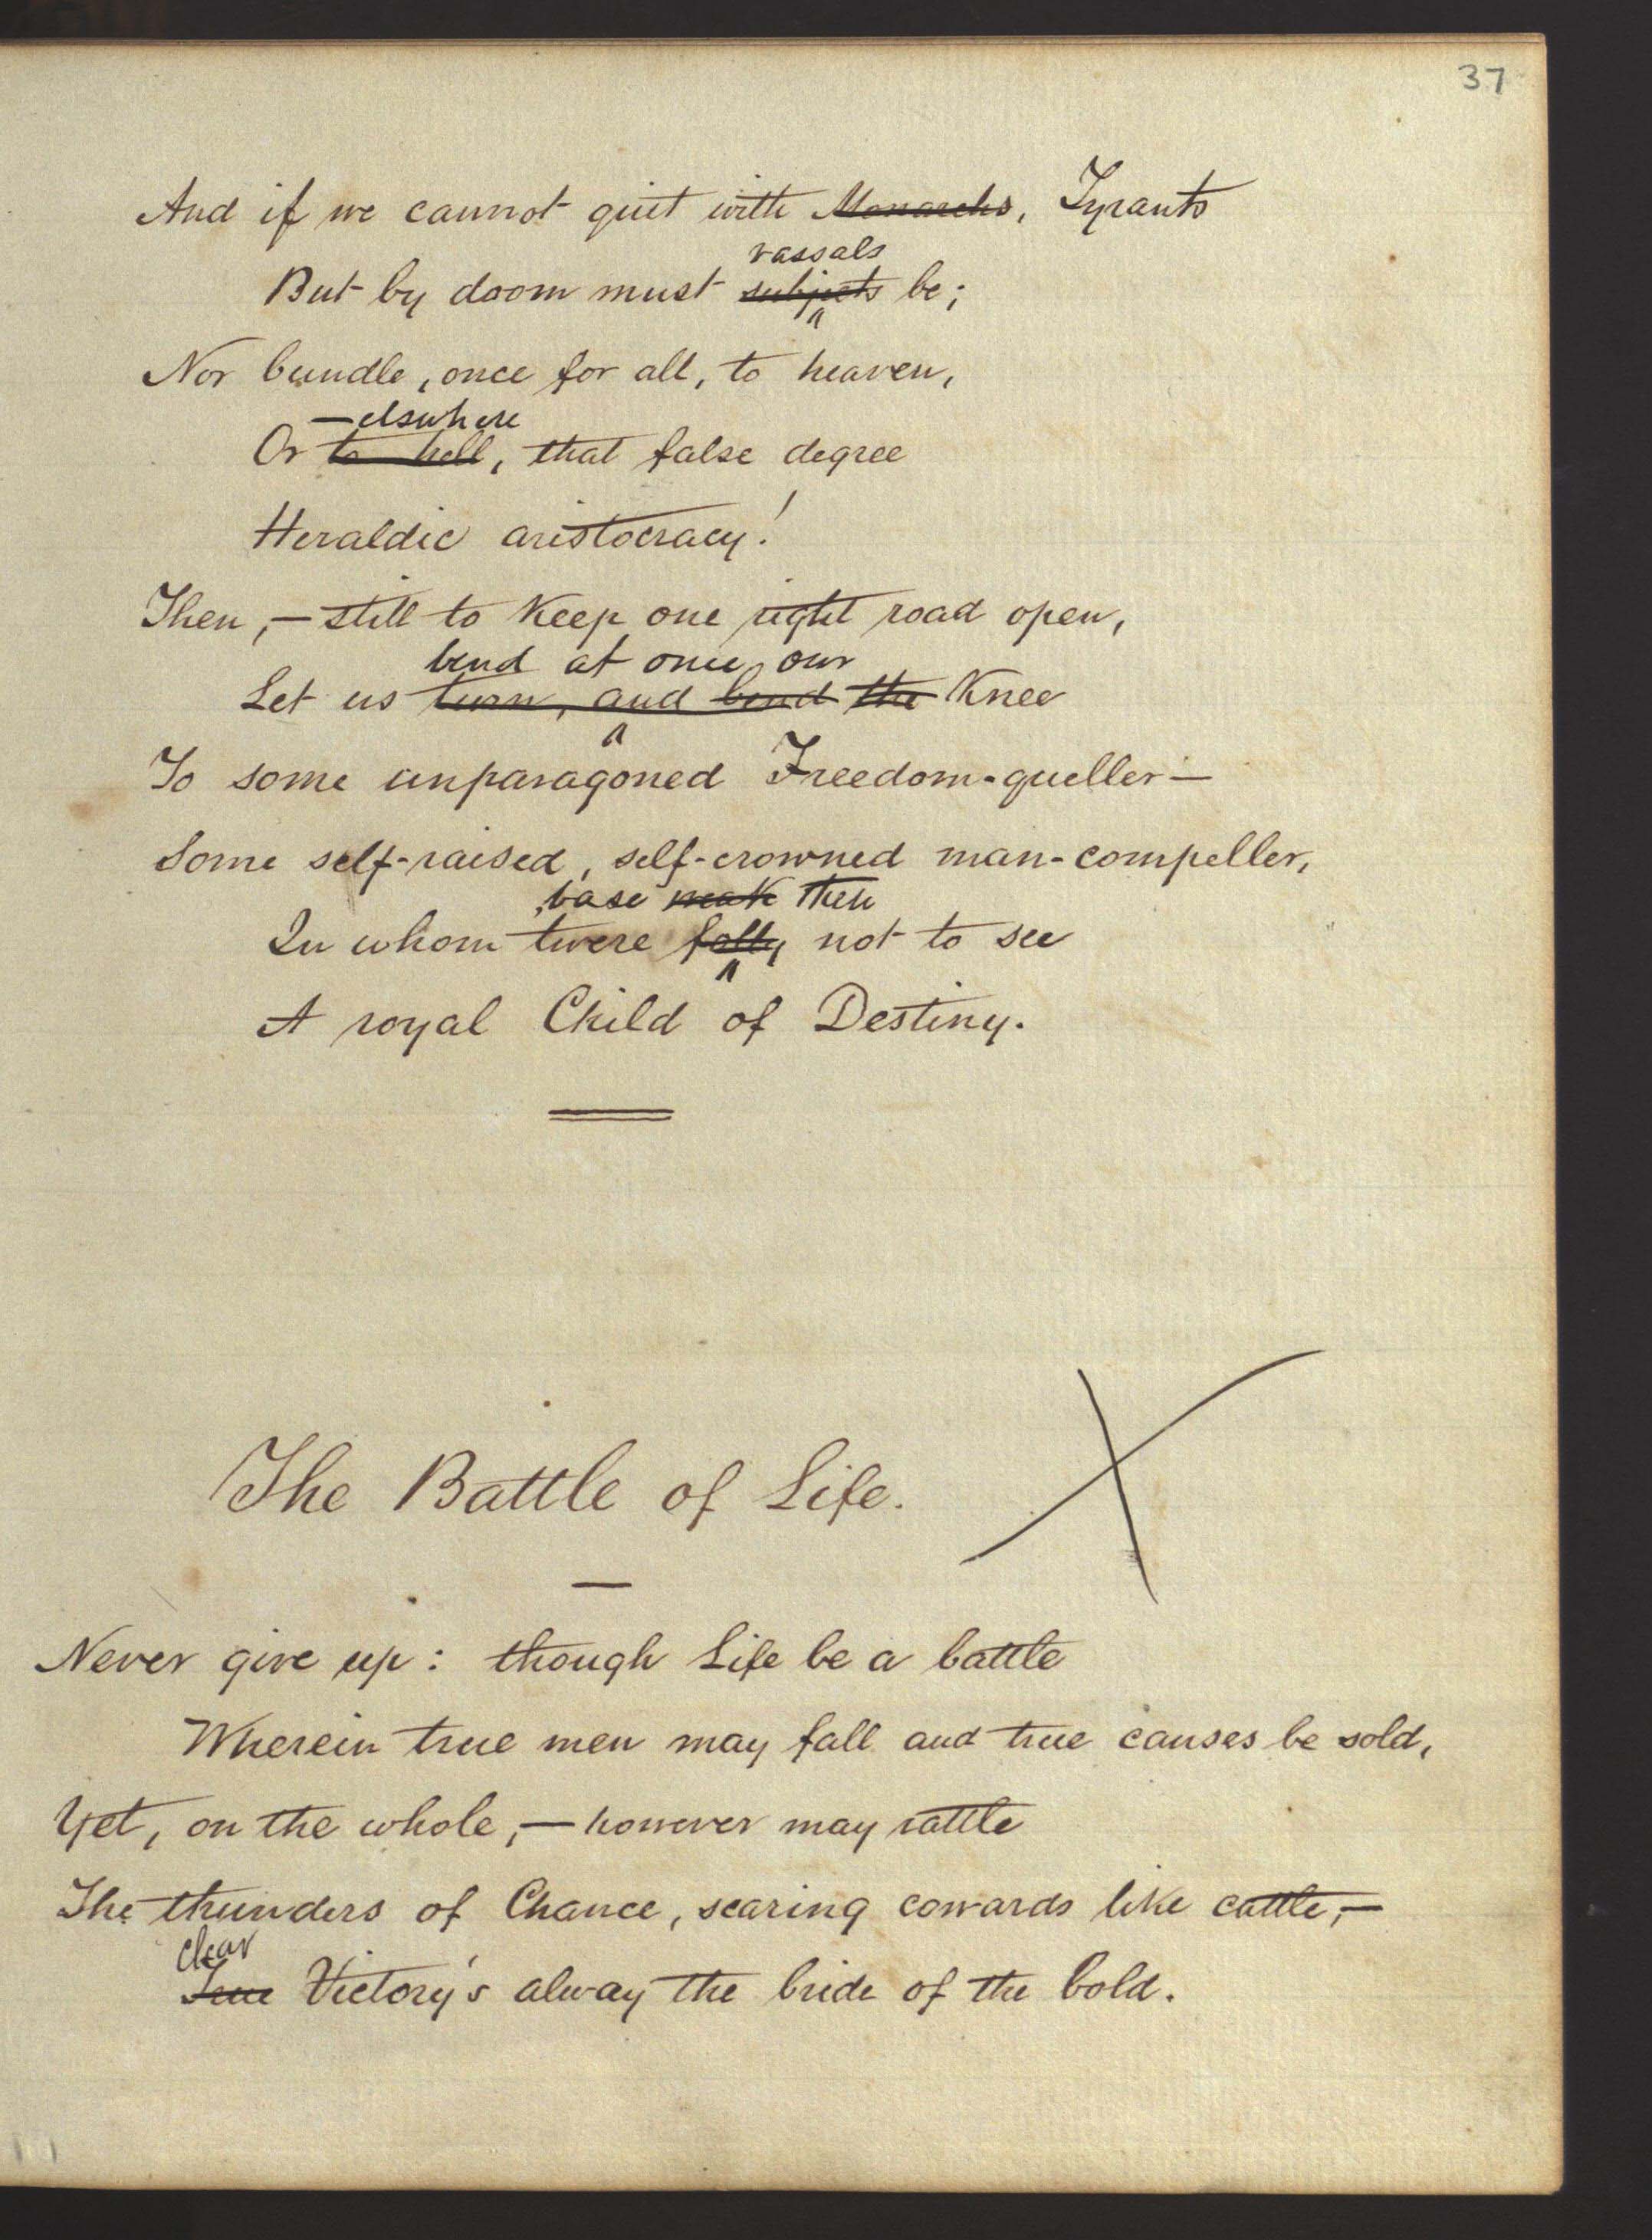 37
And if we cannot quit with Monarchs, Tyrants
vassals
But by doom must subjects be;
Nor bundle, once for all, to heaven,
—elsewhere
Or to hell, that false degree
Heraldic aristocracy!
Then,—still to keep one right road open,
bend at once, our
Let us turn, and bend the Knee
To some unparagoned Freedom-queller—
Some self-raised, self-crowned man-compeller,
base weak then
In whom twere folly, not to see
A royal Child of Destiny.
The Battle of Life.
Never give up: though Life be a battle
Wherein true men may fall and true causes be sold,
Yet, on the whole,—however may rattle
The thunders of Chance, scaring cowards like cattle,—
clear
True Victory's alway the bride of the bold.